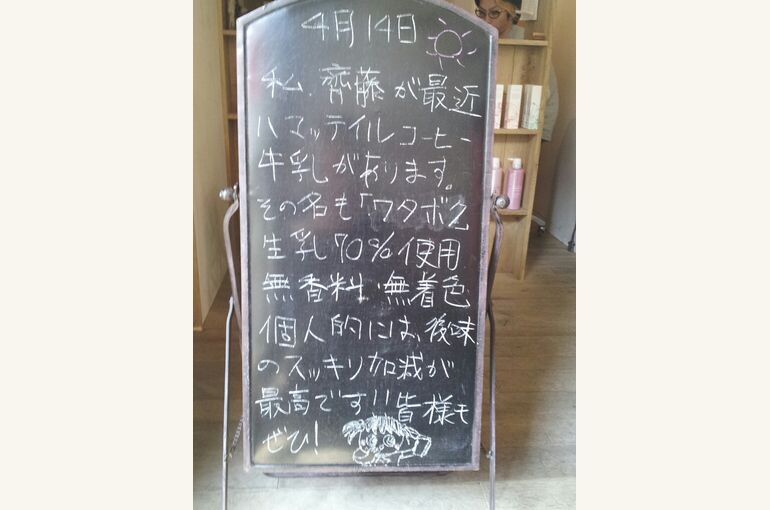 4月14日
私、齊藤が最近
ハマッテイルコーヒー
牛乳があります。
その名も「ワタボク
生乳70%使用
無香料・無着色
個人的には、後味
のスッキリ加減が
最高です!!皆様も
ぜひ!